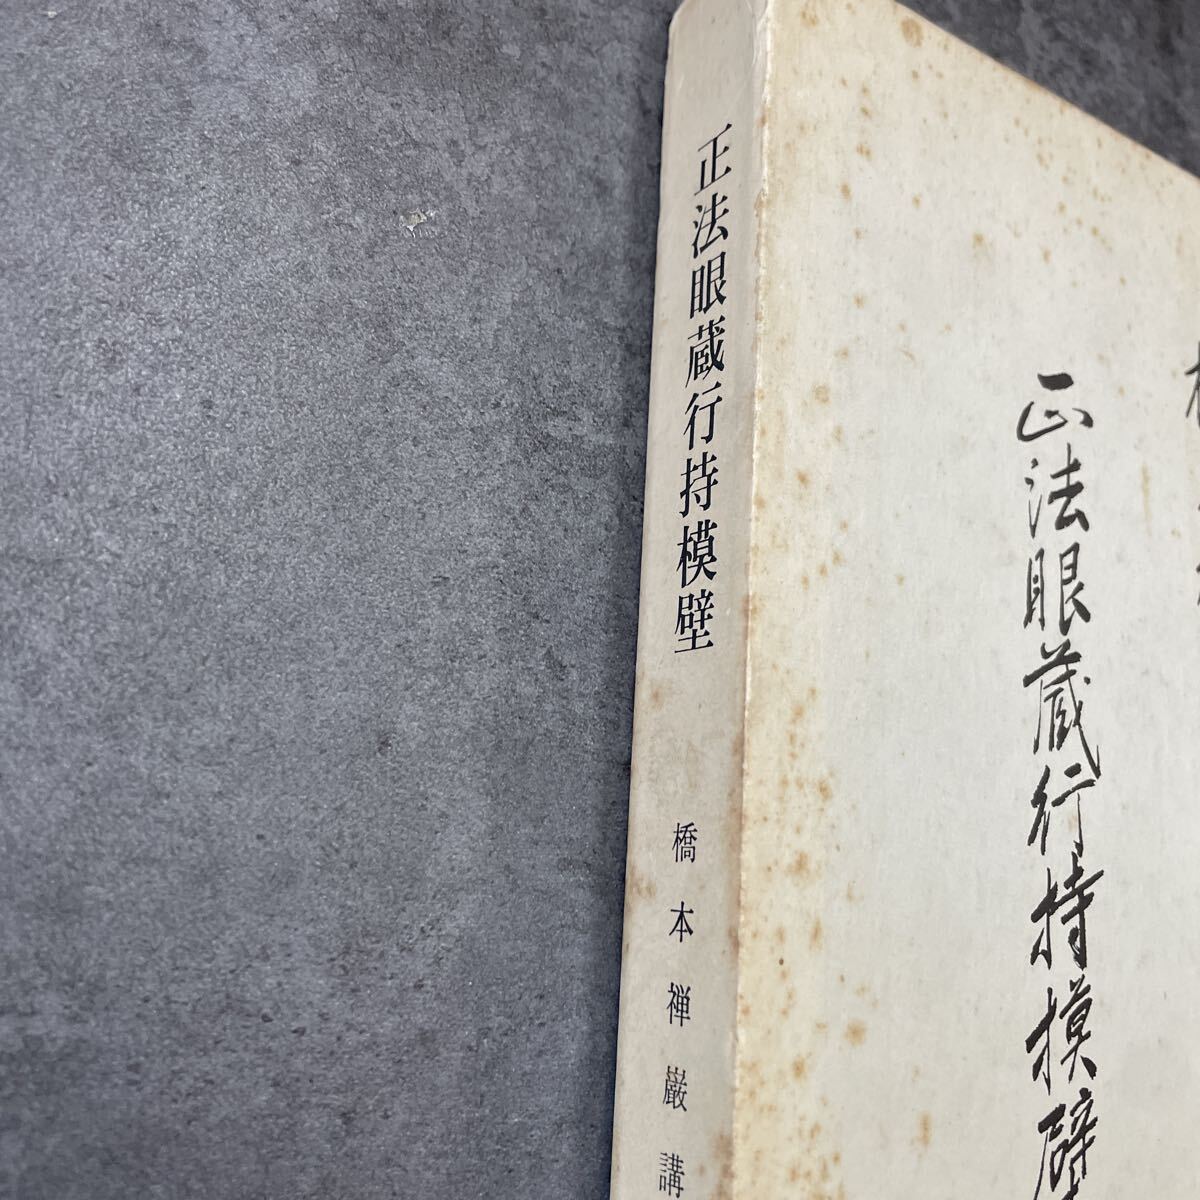 正法眼蔵行持模壁
橋本禅巌講
正法眼蔵行持模壁